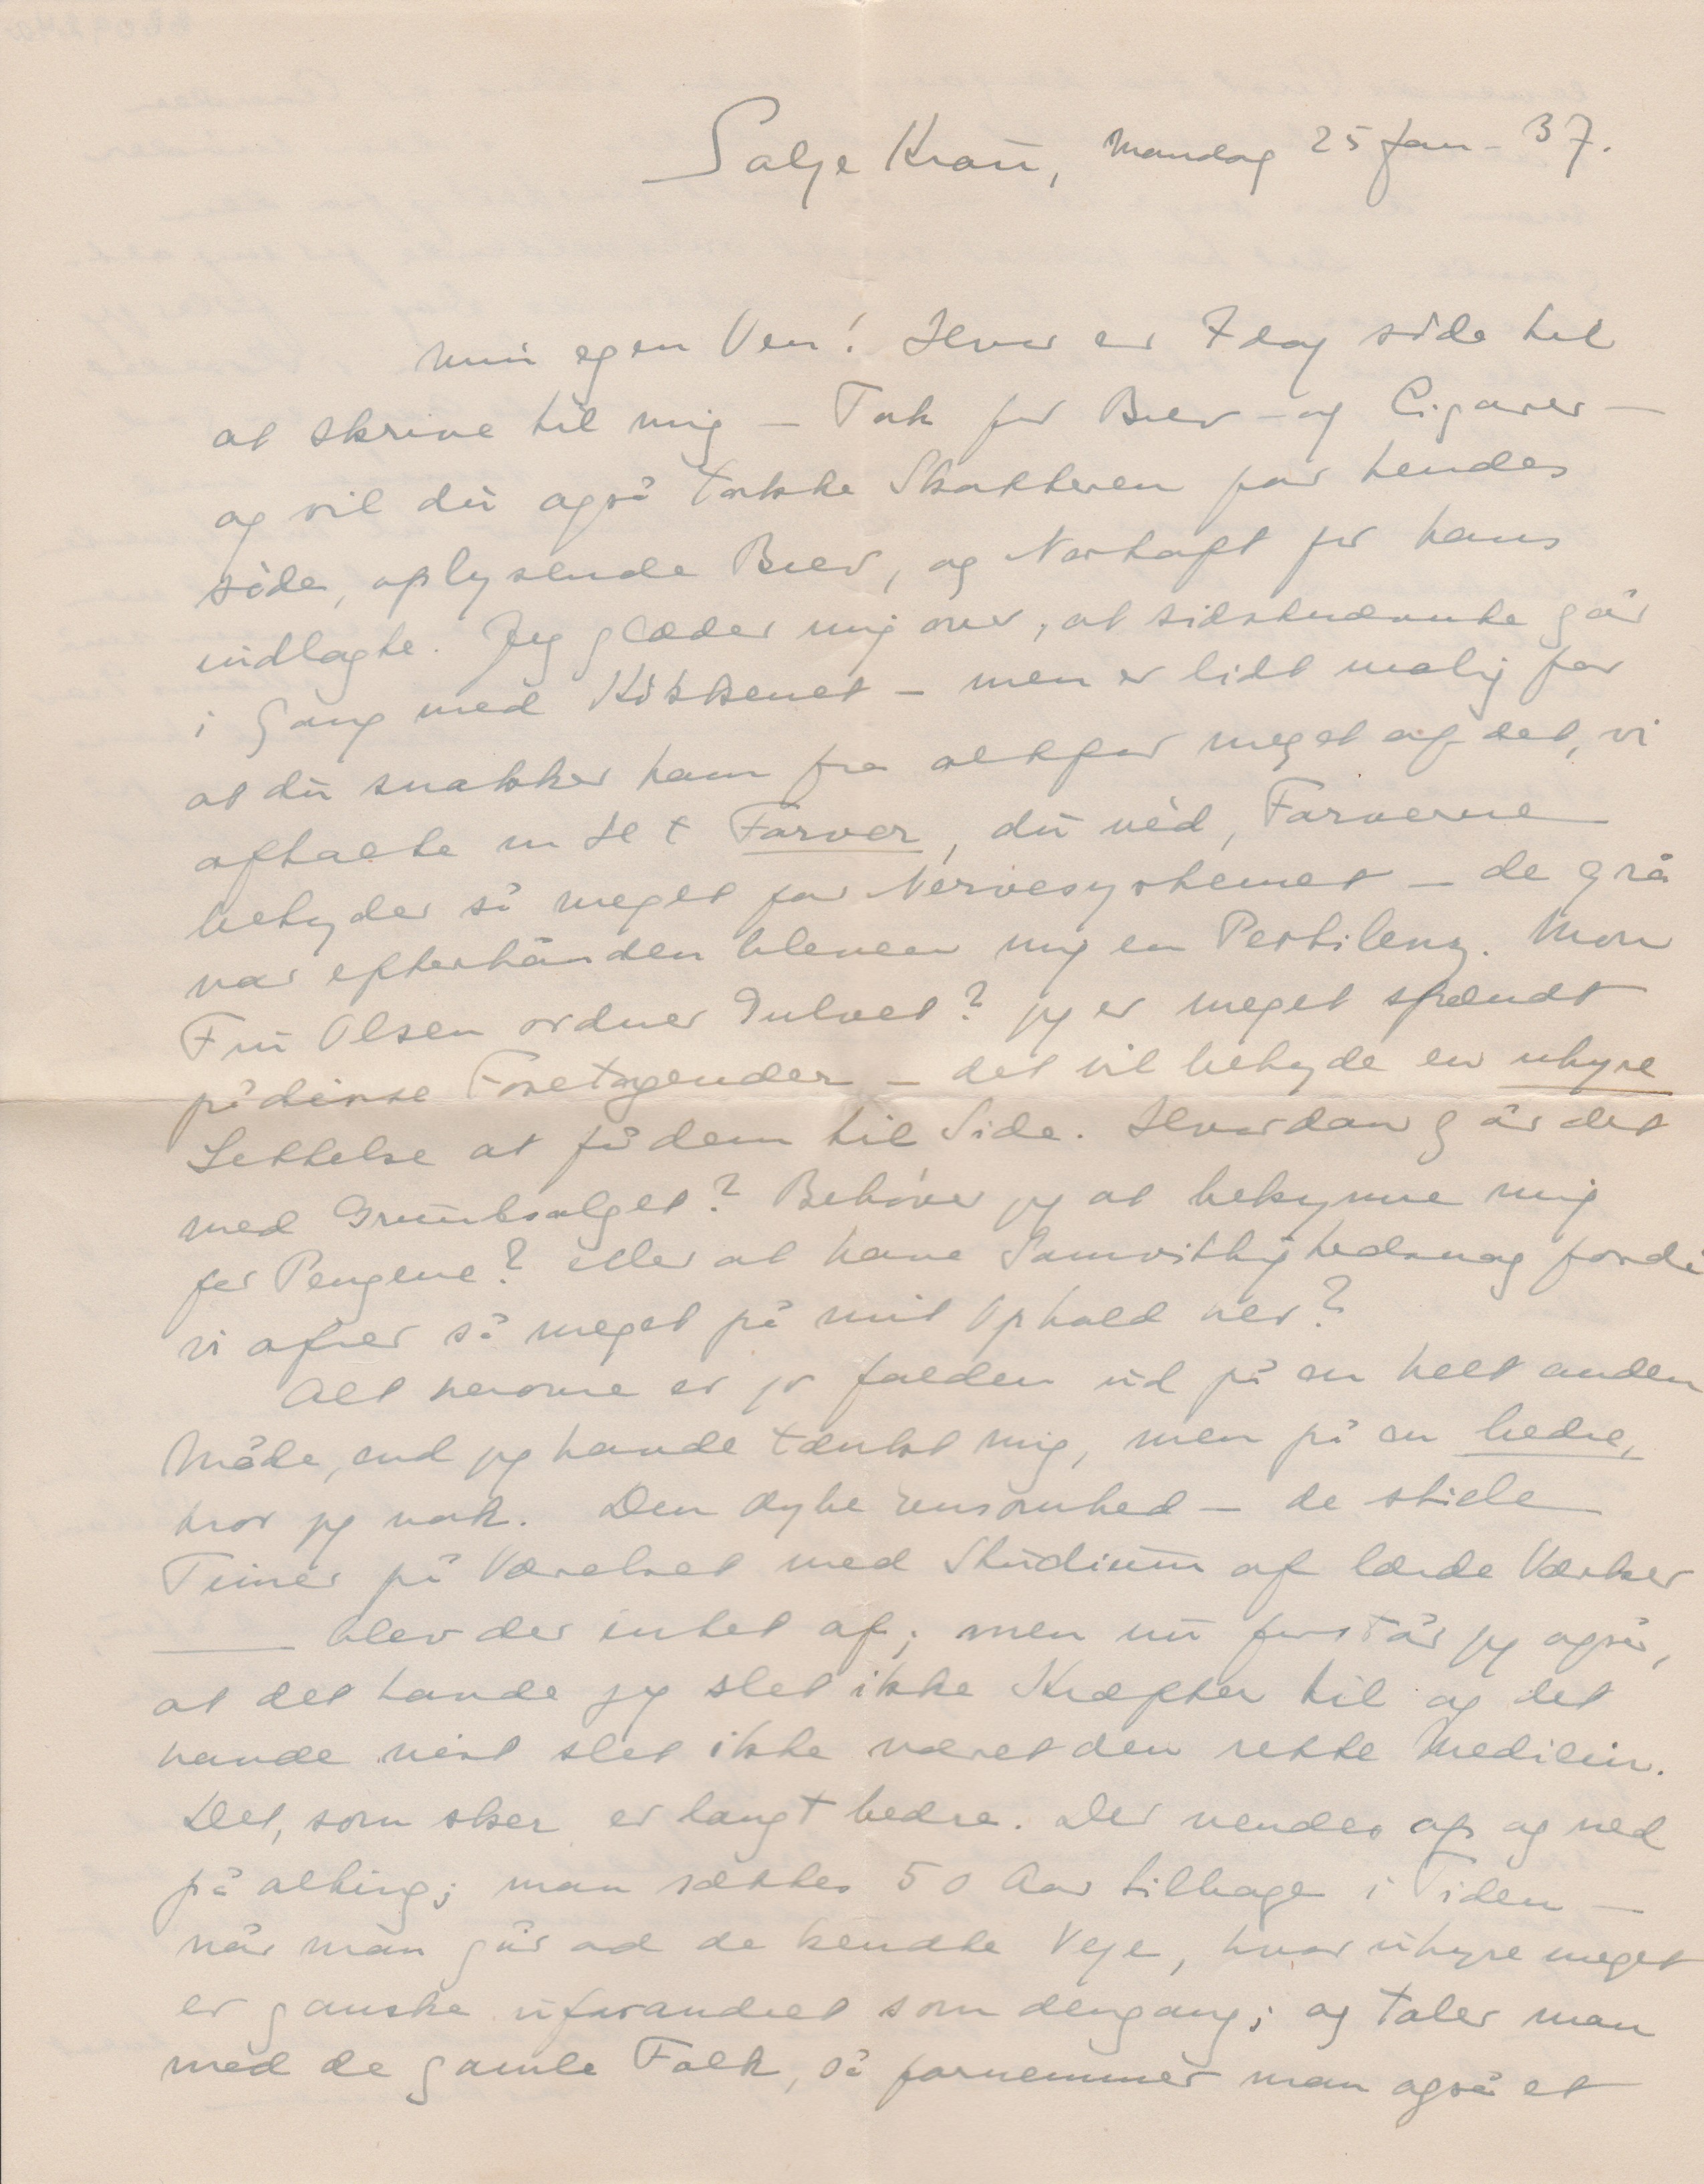 Salge Kran, Mandag 25 Jan - 37.
Min egen Ven! Hvor er I dog söde til
at skrive til mig — Tak for Brev - og Cigarer —
og vil du også takke Skatteren for hendes
söde, oplysende Brev, og Northoft for hans
indlagte. Jeg glæder mig over, at sidstnævnte går
i Gang med Køkkenet — men er lidt urolig for
at du snakker ham fra altfor meget af det, vi
aftalte m H t Farver, du véd, Farverne
betyder så meget for Nervesystemet — de grå
var efterhånden bleven mig en Pestilens. Mon
Fru Olsen ordner Gulvet? jeg er meget spændt
på disse Foretagender — det vil betyde en uhyre
Lettelse at få dem til Side. Hvordan går det
med Grundsalget? Behøver jeg at bekymre mig
for Pengene? eller at have Samvittighedsnag fordi
vi ofrer så meget på mit Ophold her?
Alt herovre er jo falden ud på en helt anden
Måde, end jeg havde tænkt mig, men på en bedre,
tror jeg nok. Den dybe Ensomhed — de stille
Timer på Værelset med Studium af lærde Værker
— blev der intet af; men nu forstår jeg også,
at det havde jeg slet ikke Kræfter til og det
havde vist slet ikke været den rette Medicin.
Det, som sker er langt bedre. Der vendes op og ned
på alting; man sættes 50 Aar tilbage i Tiden —
når man går ad de kendte Veje, hvor uhyre meget
er ganske uforandret som dengang; og taler man
med de gamle Folk, så fornemmer man også et